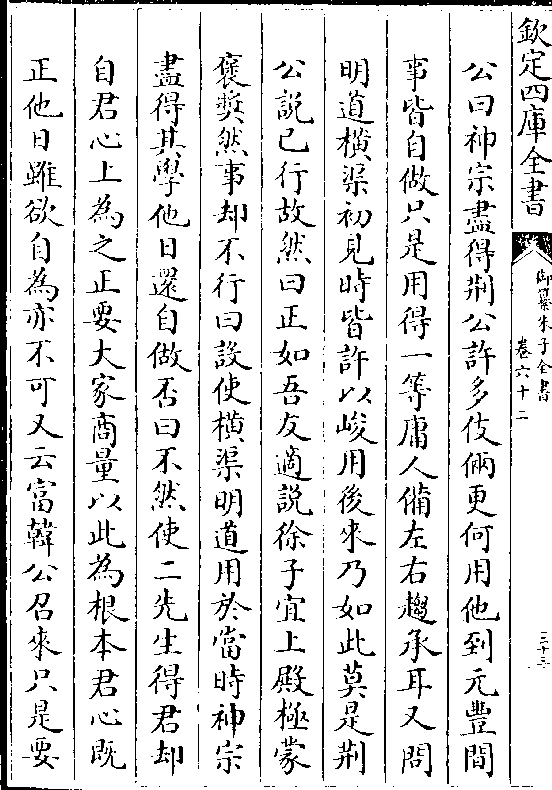 欽定四庫全書
御纂朱子全書
卷六十二
三十三
公曰神宗盡得荆公許多伎倆更何用他到元豐間
事皆自做只是用得一等庸人備左右趨承耳又問
明道橫渠初見時皆許以峻用後來乃如此莫是荆
公説已行故然曰正如吾友適説徐子宜上殿極蒙
褒奬然事却不行曰設使橫渠明道用於當時神宗
盡得其學他日還自做否曰不然使二先生得君却
自君心上為之正要大家商量以此為根本君心既
正他日雖欲自為亦不可又云富韓公召來只是要